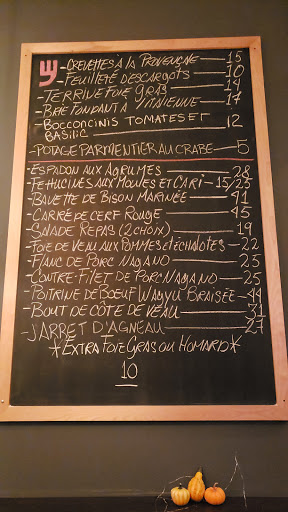 -CREVETTES À LA PROVENÇALE — 15
-FEUILLETÉ D'ESCARGOTS — 10
-TERRINE FOIE GRAS — 19
-BRIE FONDANT À L'ITALIENNE — 17
-BOCCONCINIS TOMATES ET BASILIC — 12
-POTAGE PARMENTIER AU CRABE — 5
-ESPADON AUX AGRUMES — 28
-FETTUCINES AUX MOULES ET CARI - 15/25
-BAVETTE DE BISON MARINÉE — 41
-CARRÉ DE CERF ROUGE — 45
-SALADE REPAS (2 CHOIX) — 19
-FOIE DE VEAU AUX POMMES ET ÉCHALOTES - 22
-FLANC DE PORC NAGANO — 25
-CONTRE-FILET DE PORC NAGANO — 25
-POITRINE DE BOEUF WAGYU BRAISÉE — 44
-BOUT DE CÔTE DE VEAU — 31
-JARRET D'AGNEAU — 27
*EXTRA FOIE GRAS OU HOMARD*
10